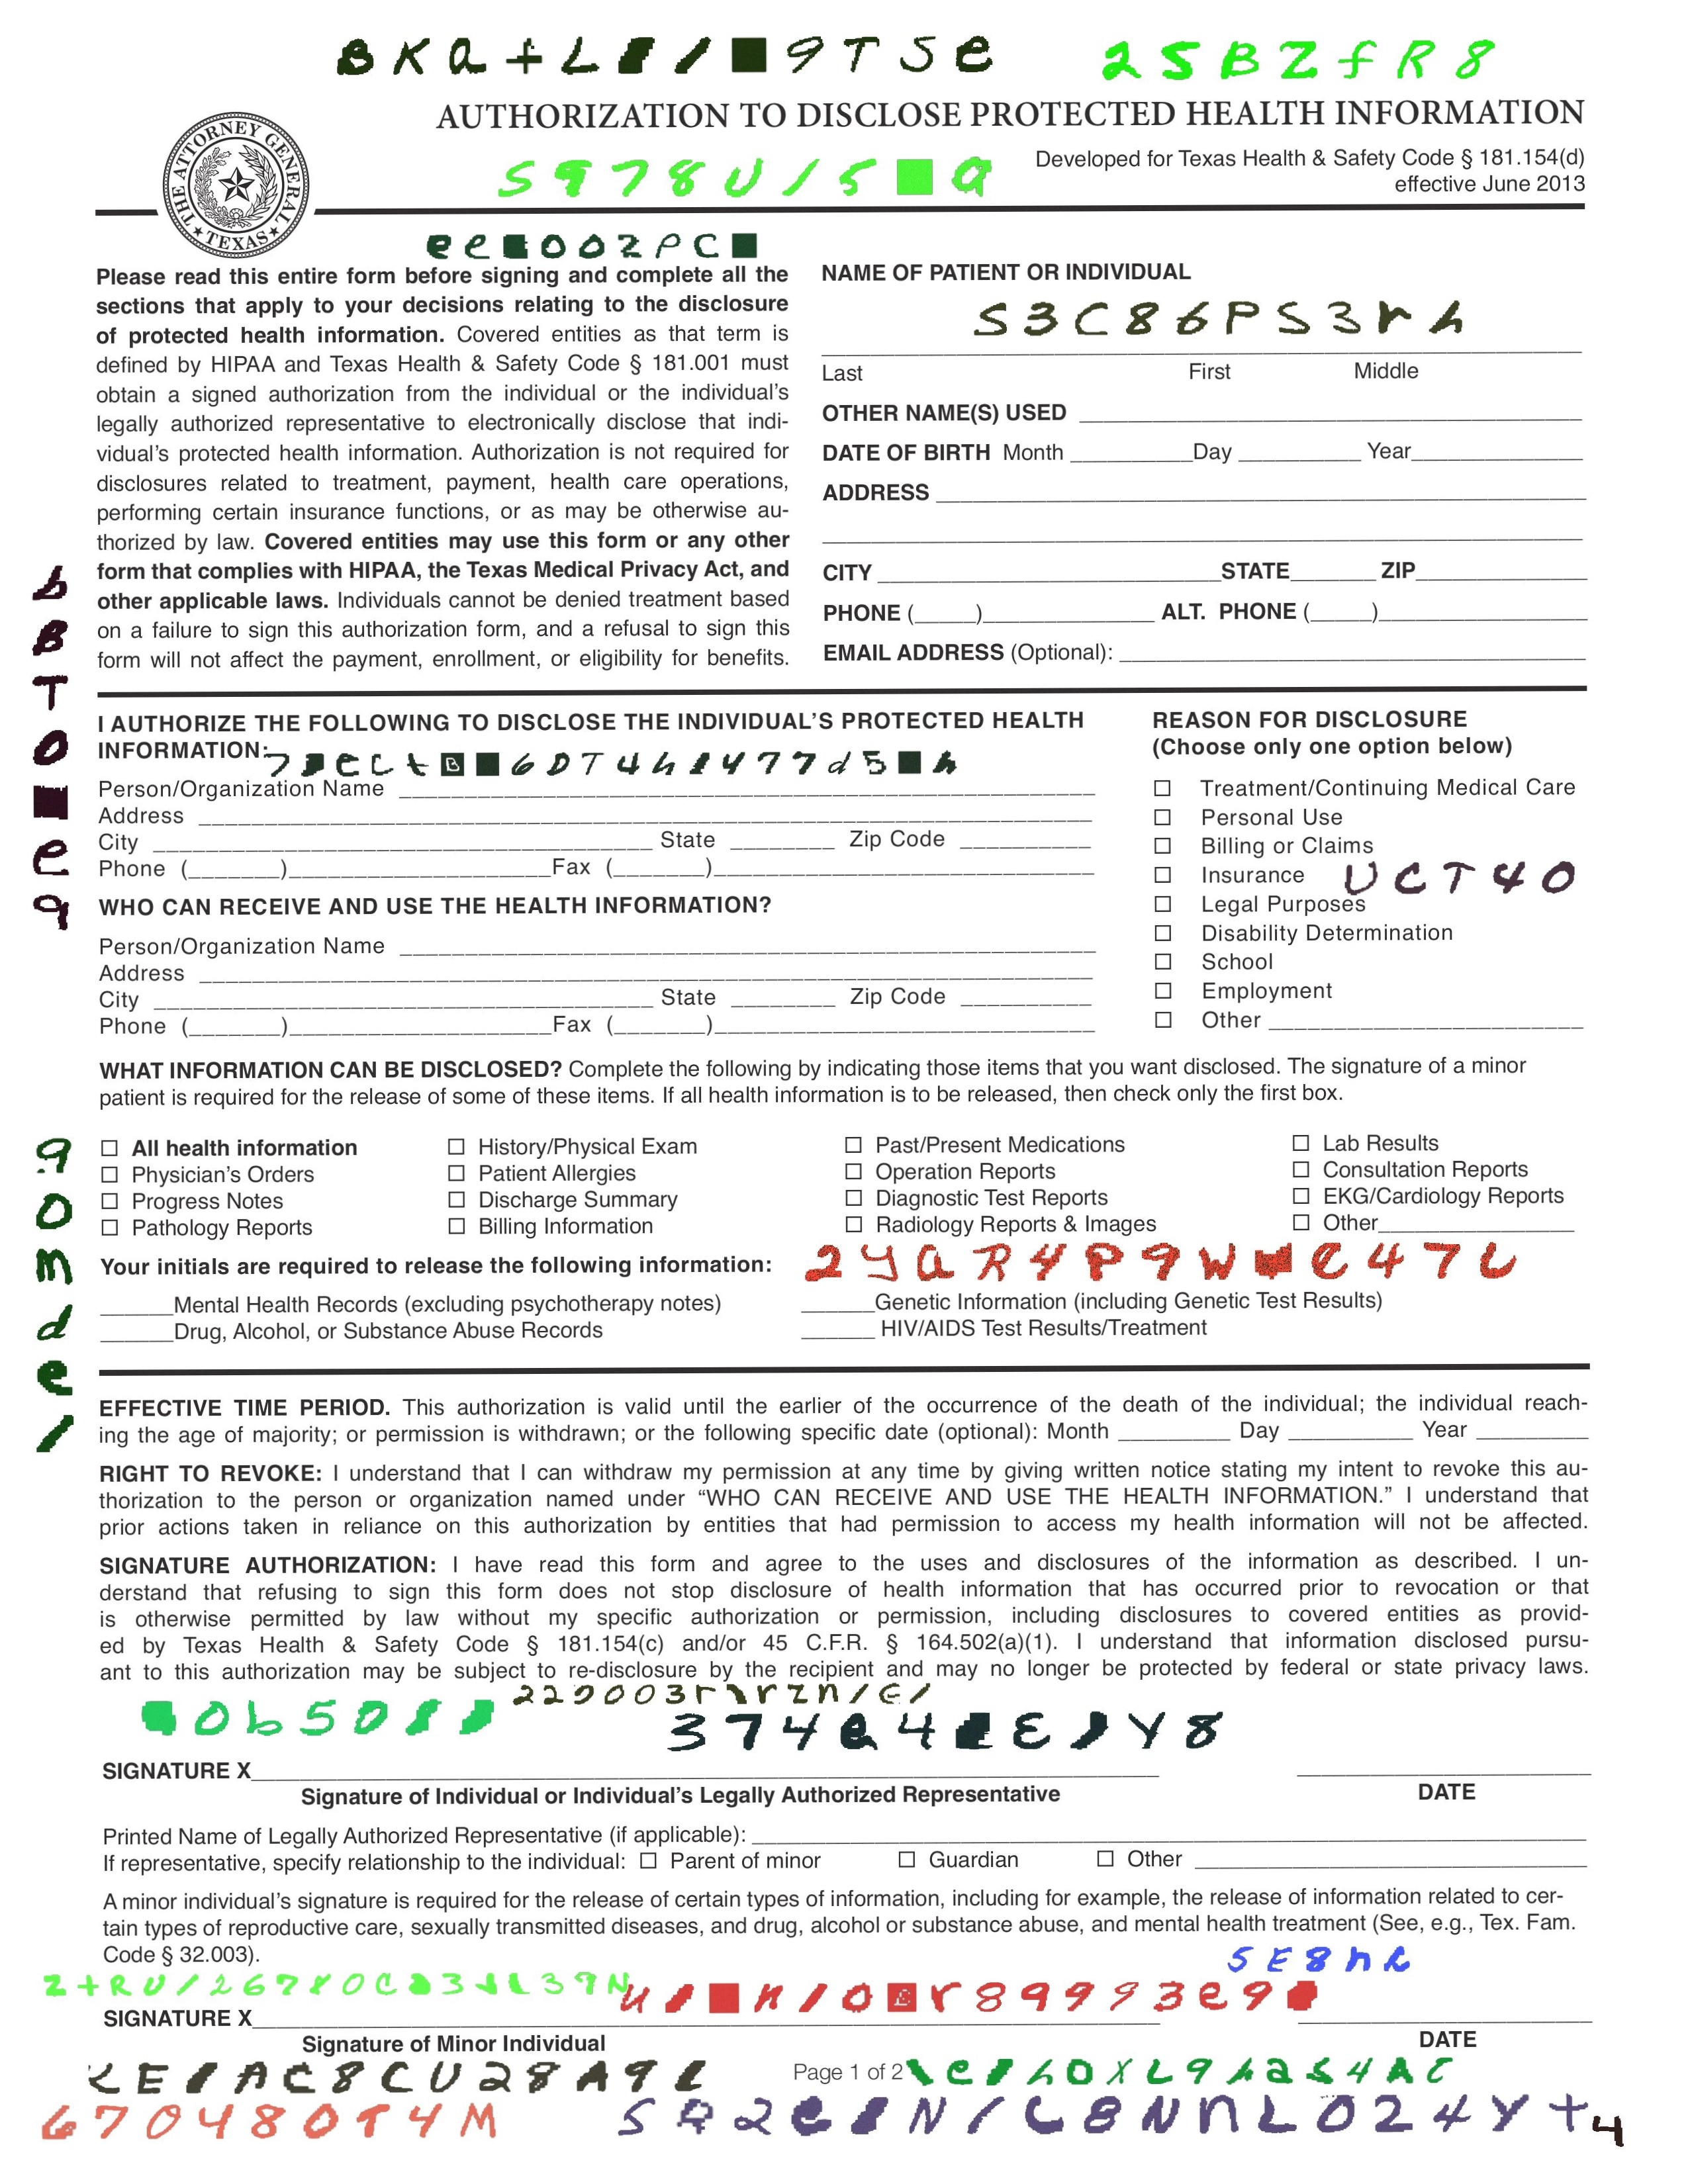 25BZfR8
AUTHORIZATION TO DISCLOSE PROTECTED HEALTH INFORMATION
Developed for Texas Health & Safety Code § 181.154(d)
effective June 2013
THE ATTORNEY GENERAL
TEXAS
Please read this entire form before signing and complete all the
sections that apply to your decisions relating to the disclosure
of protected health information. Covered entities as that term is
defined by HIPAA and Texas Health & Safety Code § 181.001 must
obtain a signed authorization from the individual or the individual's
legally authorized representative to electronically disclose that indi-
vidual's protected health information. Authorization is not required for
disclosures related to treatment, payment, health care operations,
performing certain insurance functions, or as may be otherwise au-
thorized by law. Covered entities may use this form or any other
form that complies with HIPAA, the Texas Medical Privacy Act, and
other applicable laws. Individuals cannot be denied treatment based
on a failure to sign this authorization form, and a refusal to sign this
form will not affect the payment, enrollment, or eligibility for benefits.
NAME OF PATIENT OR INDIVIDUAL
S3C86PS3rh
Last First Middle
OTHER NAME(S) USED
DATE OF BIRTH Month Day Year
ADDRESS
CITY STATE ZIP
PHONE ( ) ALT. PHONE ( )
EMAIL ADDRESS (Optional):
I AUTHORIZE THE FOLLOWING TO DISCLOSE THE INDIVIDUAL'S PROTECTED HEALTH
INFORMATION:
Person/Organization Name
Address
City State Zip Code
Phone ( ) Fax ( )
WHO CAN RECEIVE AND USE THE HEALTH INFORMATION?
Person/Organization Name
Address
City State Zip Code
Phone ( ) Fax ( )
REASON FOR DISCLOSURE
(Choose only one option below)
Treatment/Continuing Medical Care
Personal Use
Billing or Claims
Insurance
UCT40
Legal Purposes
Disability Determination
School
Employment
Other
WHAT INFORMATION CAN BE DISCLOSED? Complete the following by indicating those items that you want disclosed. The signature of a minor
patient is required for the release of some of these items. If all health information is to be released, then check only the first box.
All health information History/Physical Exam Past/Present Medications Lab Results
Physician's Orders Patient Allergies Operation Reports Consultation Reports
Progress Notes Discharge Summary Diagnostic Test Reports EKG/Cardiology Reports
Pathology Reports Billing Information Radiology Reports & Images Other
Your initials are required to release the following information:
Mental Health Records (excluding psychotherapy notes) Genetic Information (including Genetic Test Results)
Drug, Alcohol, or Substance Abuse Records HIV/AIDS Test Results/Treatment
EFFECTIVE TIME PERIOD. This authorization is valid until the earlier of the occurrence of the death of the individual; the individual reach-
ing the age of majority; or permission is withdrawn; or the following specific date (optional): Month Day Year
RIGHT TO REVOKE: I understand that I can withdraw my permission at any time by giving written notice stating my intent to revoke this au-
thorization to the person or organization named under “WHO CAN RECEIVE AND USE THE HEALTH INFORMATION.” I understand that
prior actions taken in reliance on this authorization by entities that had permission to access my health information will not be affected.
SIGNATURE AUTHORIZATION: I have read this form and agree to the uses and disclosures of the information as described. I un-
derstand that refusing to sign this form does not stop disclosure of health information that has occurred prior to revocation or that
is otherwise permitted by law without my specific authorization or permission, including disclosures to covered entities as provid-
ed by Texas Health & Safety Code § 181.154(c) and/or 45 C.F.R. § 164.502(a)(1). I understand that information disclosed pursu-
ant to this authorization may be subject to re-disclosure by the recipient and may no longer be protected by federal or state privacy laws.
SIGNATURE X
Signature of Individual or Individual's Legally Authorized Representative DATE
Printed Name of Legally Authorized Representative (if applicable):
If representative, specify relationship to the individual: Parent of minor Guardian Other
A minor individual's signature is required for the release of certain types of information, including for example, the release of information related to cer-
tain types of reproductive care, sexually transmitted diseases, and drug, alcohol or substance abuse, and mental health treatment (See, e.g., Tex. Fam.
Code § 32.003).
SIGNATURE X
Signature of Minor Individual DATE
Page 1 of 2
670480T4M